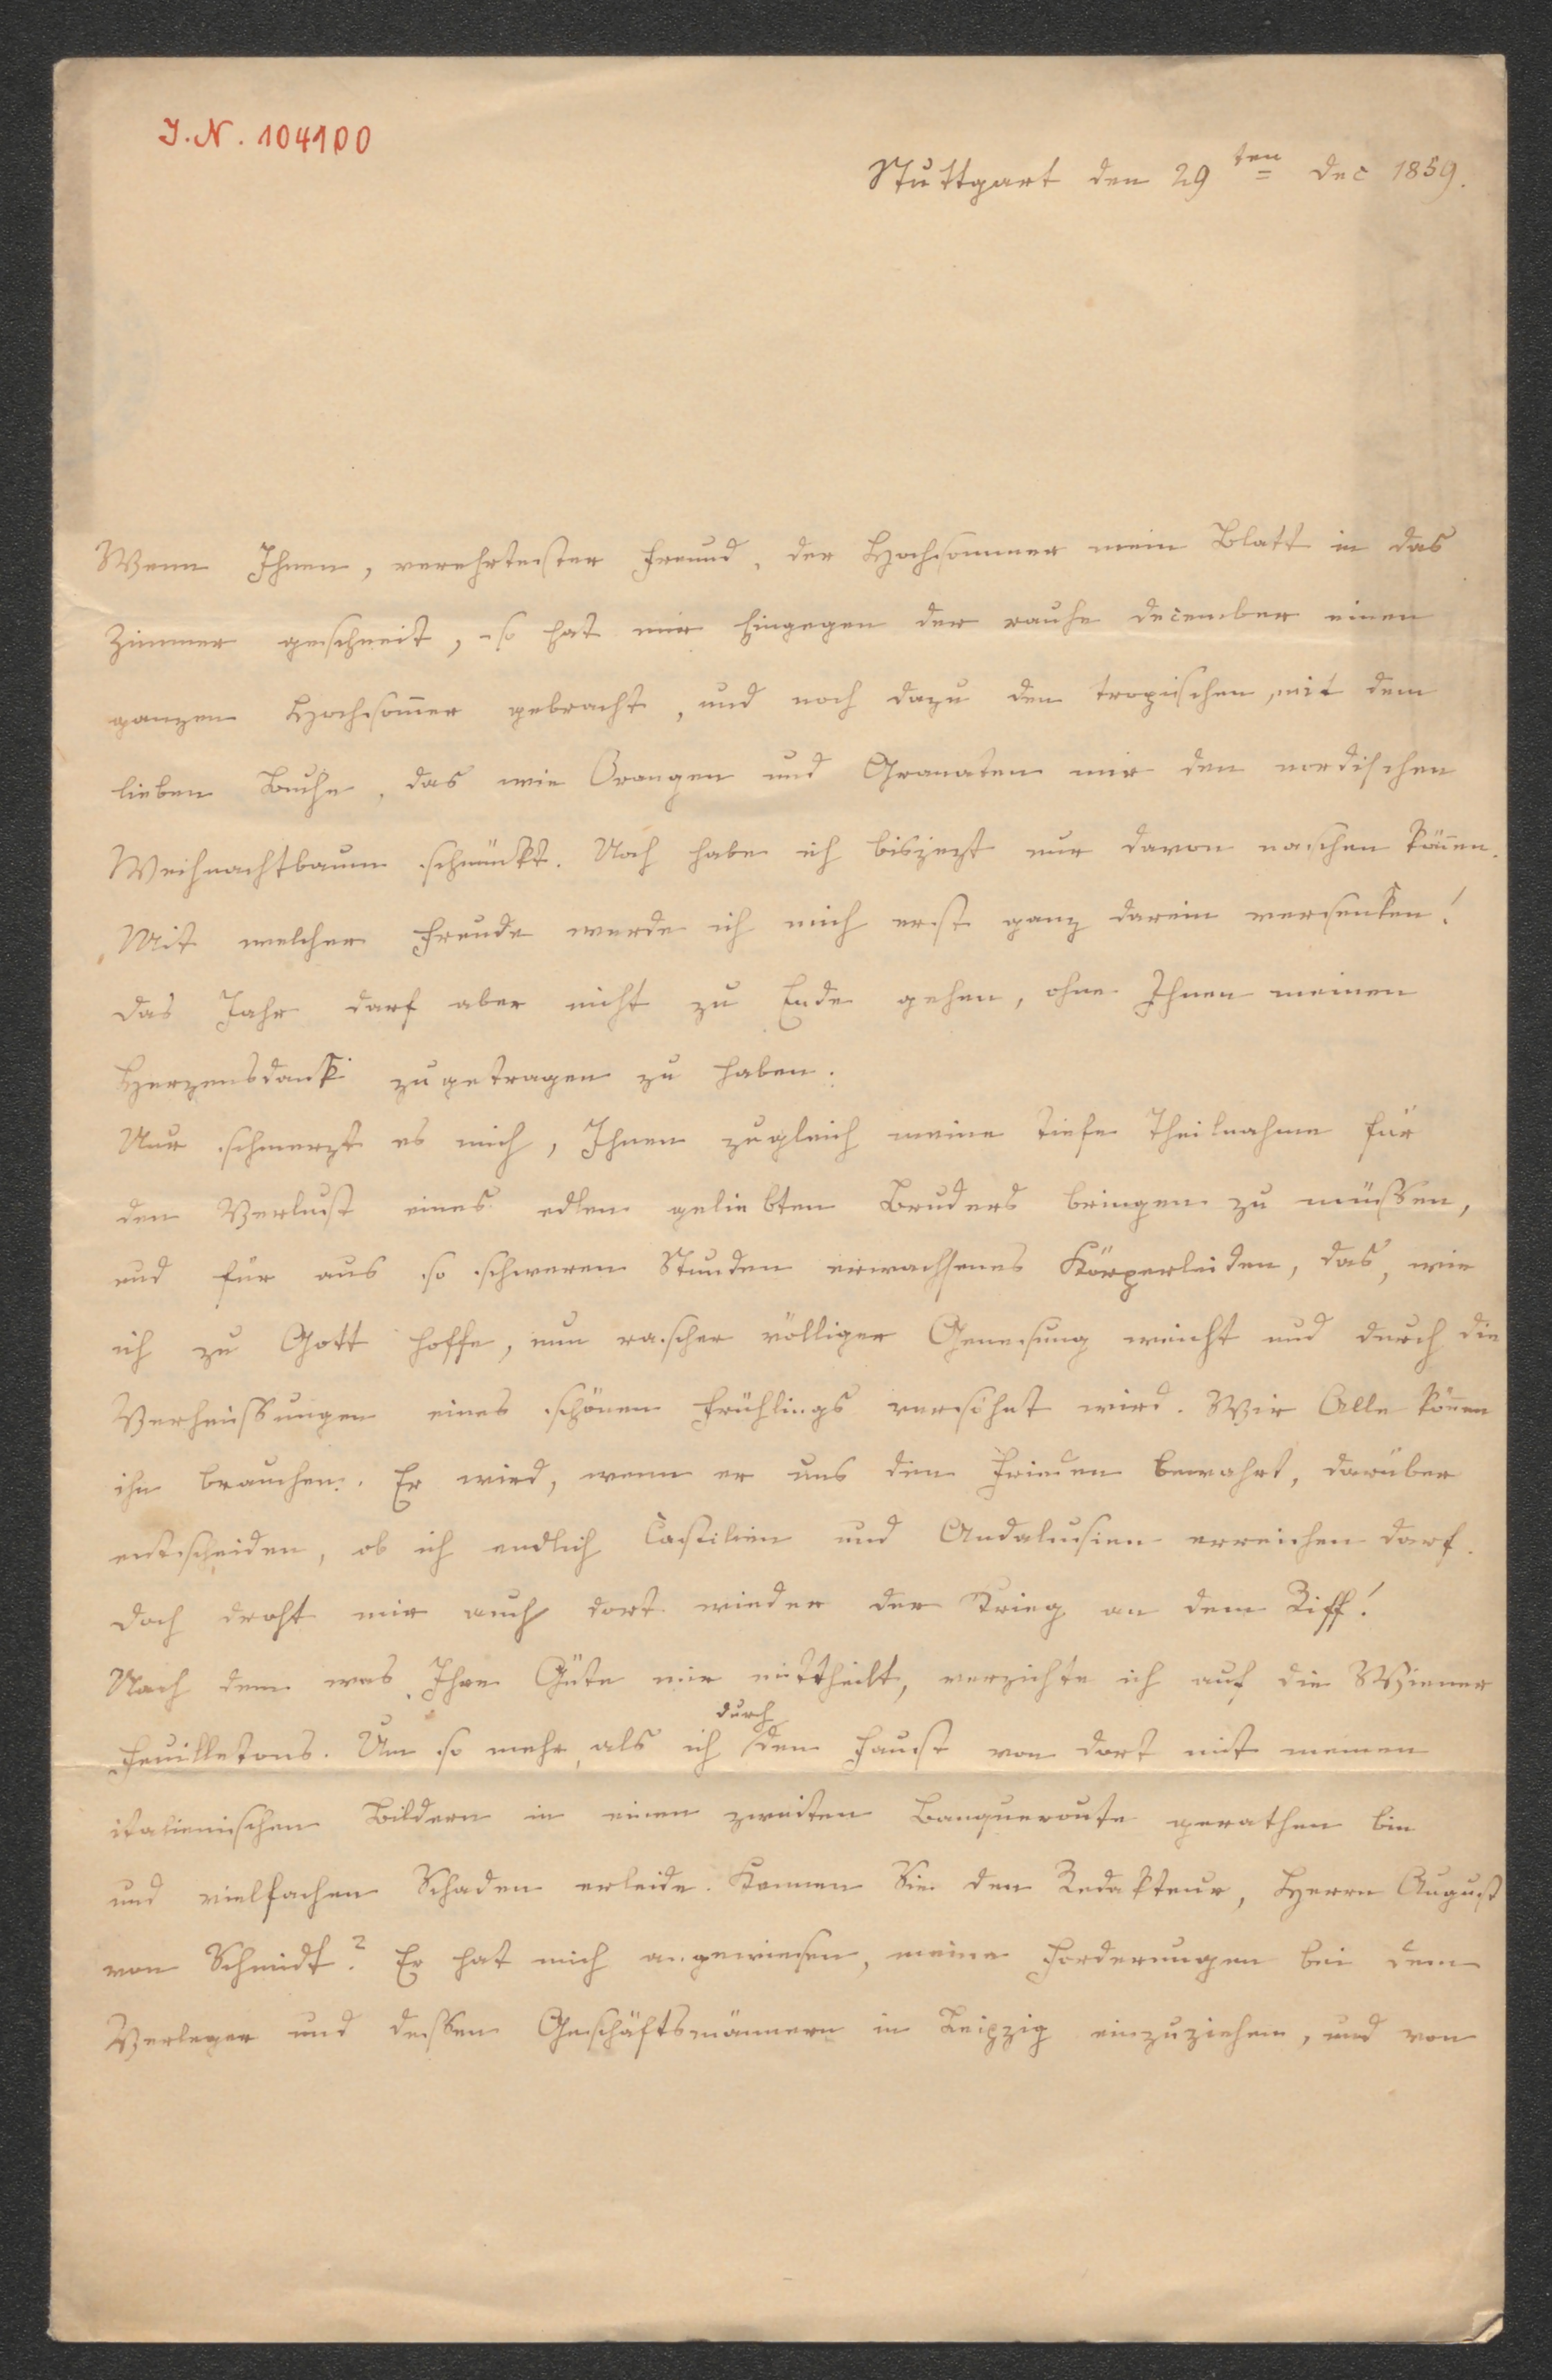 J.N. 104100
Stuttgart den 29ten Dec 1859.
Wenn Ihnen, verehrtester Freund, der Hochsommer mein Blatt in das
Zimmer geschneit, so hat mir hingegen der rauhe December einen
ganzen Hochsom̅er gebracht, und noch dazu den tropischen, mit dem
lieben Buche, das wie Orangen und Granaten mir den nordischen
Weihnachtbaum schmückt. Noch habe ich bisjezt nur davon naschen kön̅en.
Mit welcher Freude werde ich mich erst ganz darein versenken!
Das Jahr darf aber nicht zu Ende gehen, ohne Ihnen meinen
Herzensdank zugetragen zu haben.
Nur schmerzt es mich, Ihnen zugleich meine tiefe Theilnahme für
den Verlust eines edlen geliebten Bruders bringen zu müssen,
und für aus so schweren Stunden erwachsenes Körperleiden, das, wie
ich zu Gott hoffe, nun rascher völliger Genesung weicht und durch die
Verheissungen eines schönen Frühlings versöhnt wird. Wir Alle kön̅en
ihn brauchen. Er wird, wenn er uns den Frieden bewahrt, darüber
entscheiden, ob ich endlich Castilien und Andalusien erreichen darf.
Doch droht mir auch dort wieder der Krieg an dem Riff!
Nach dem was Ihre Güte mir mittheilt, verzichte ich auf die Wiener
Feuilletons. Um so mehr, als ich durch den Faust von dort mit meinen
italienischen Bildern in einen zweiten Banqueroute gerathen bin
und vielfachen Schaden erleide. Kennen Sie den Redakteur, Herrn August
von Schmidt? Er hat mich angewiesen, meine Forderungen bei dem
Verleger und dessen Geschäftsmännern in Leipzig einzuziehen, und von